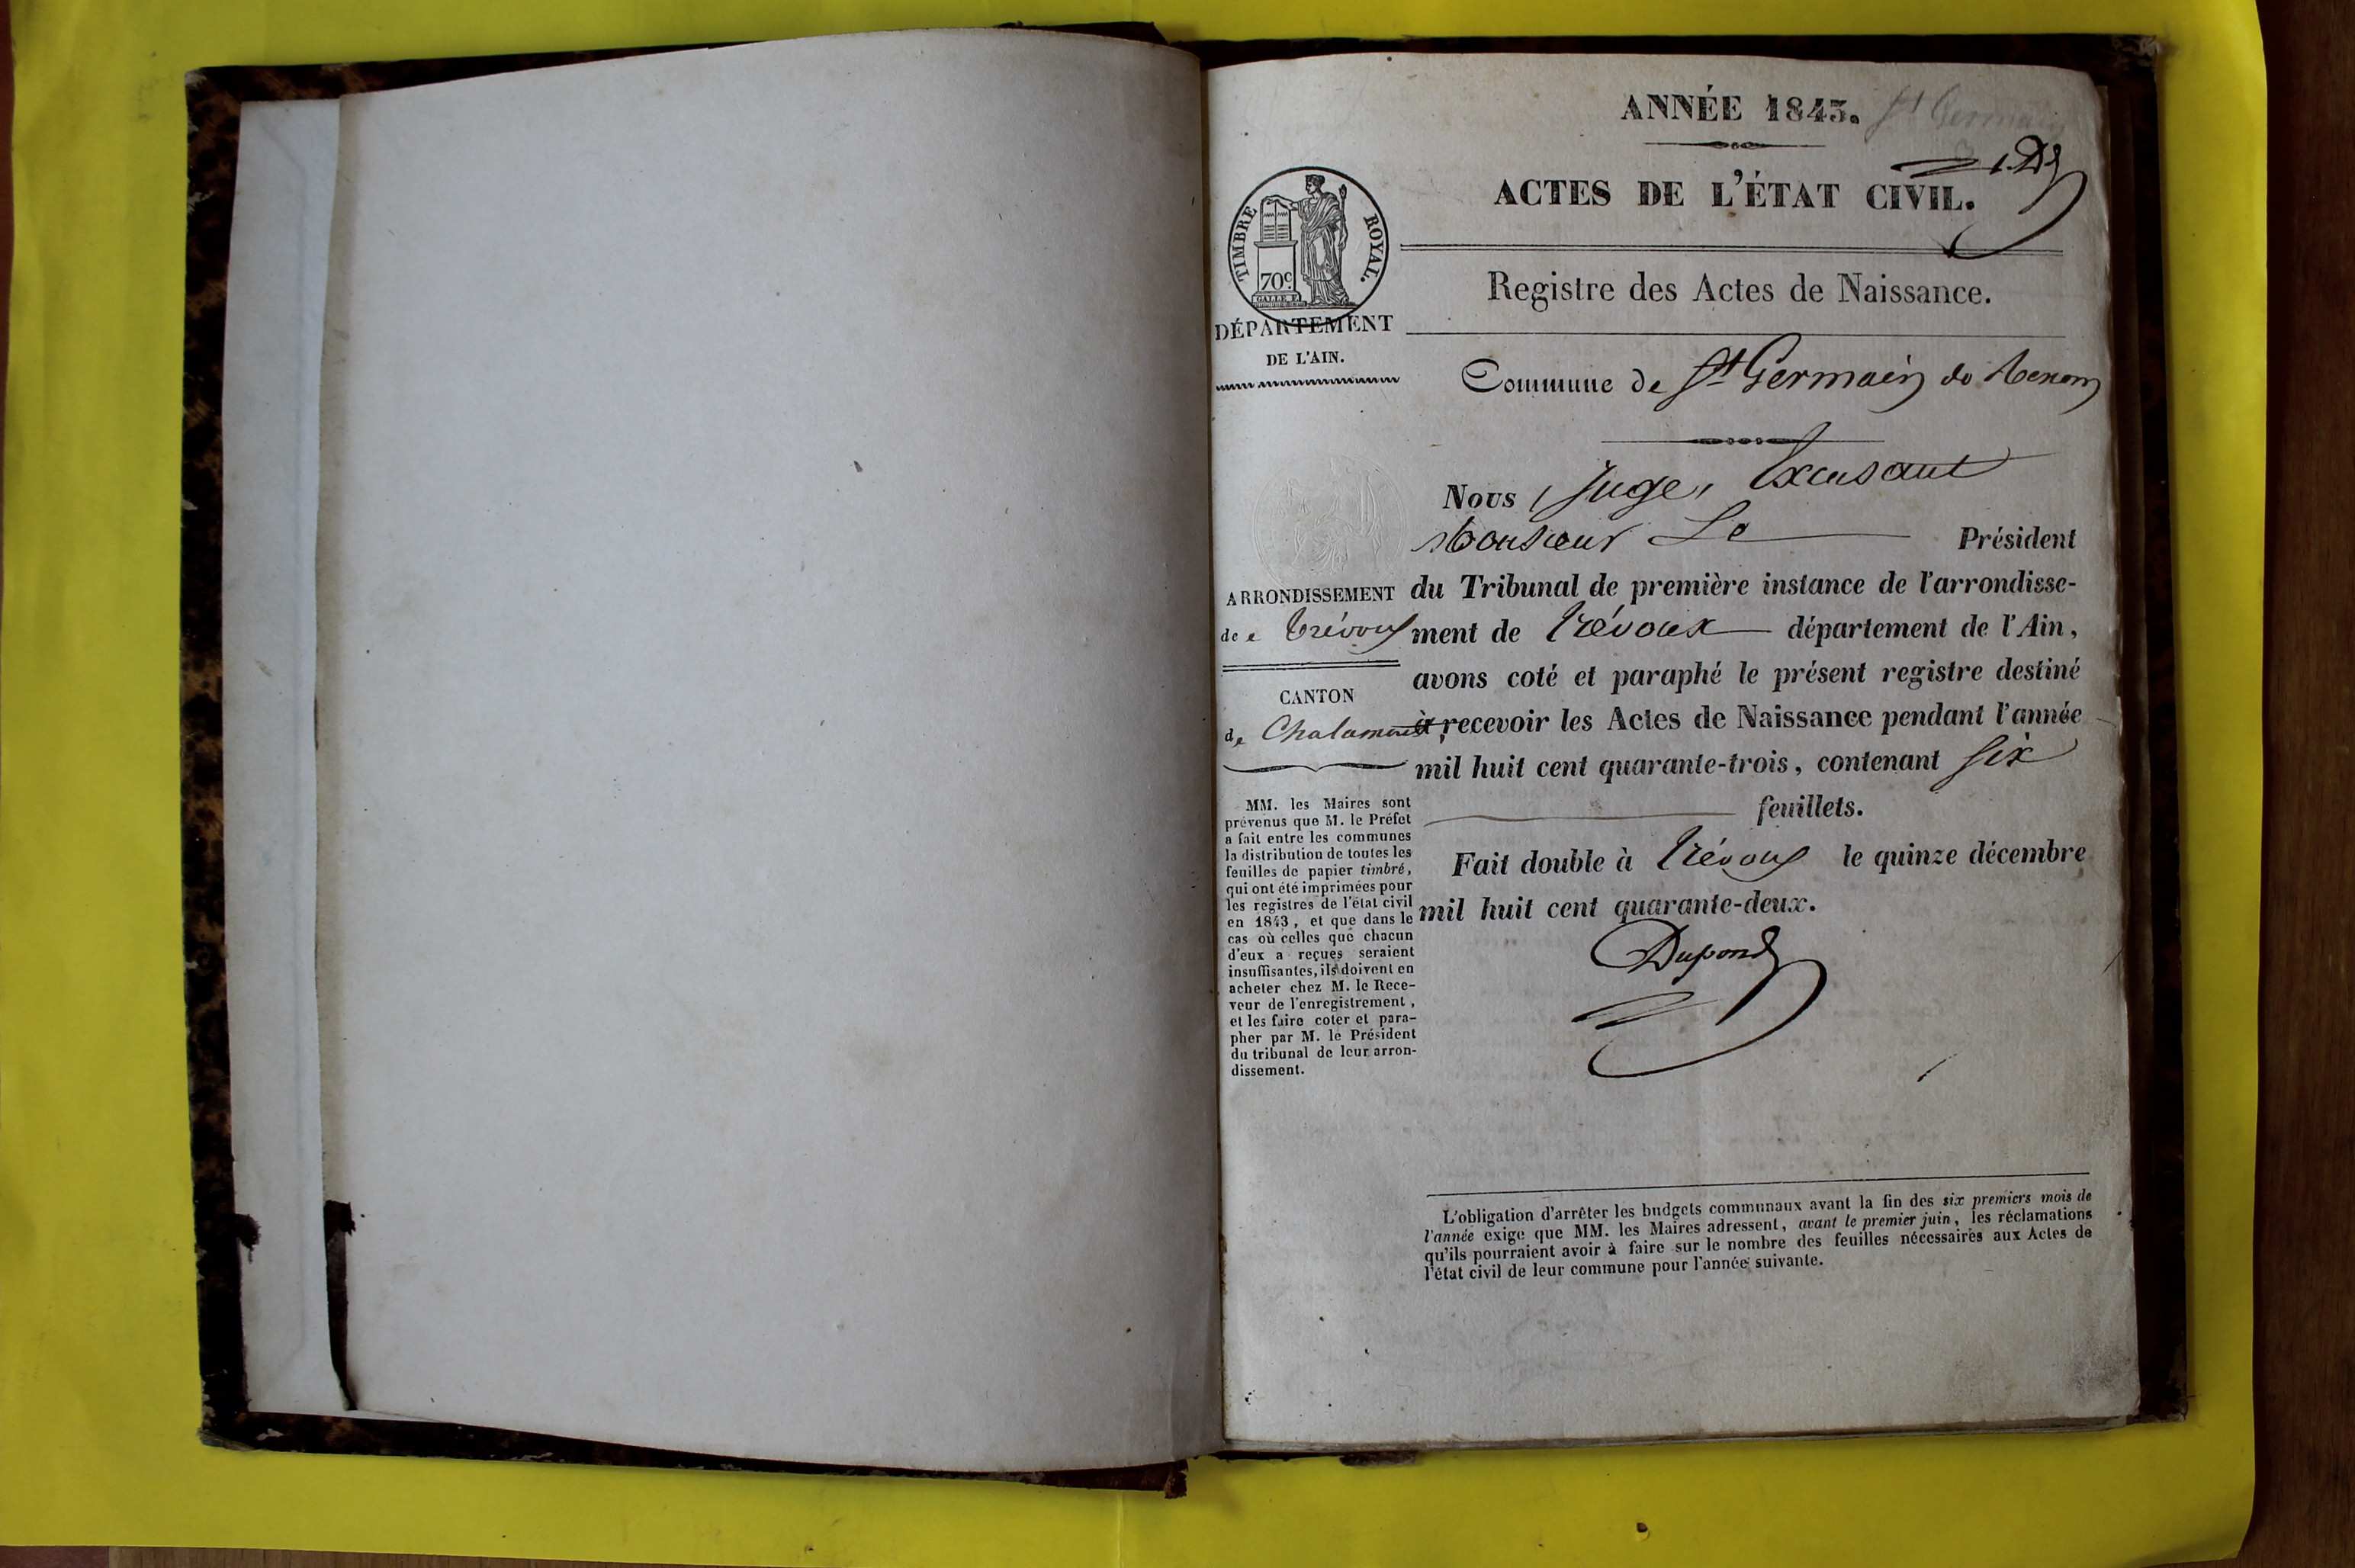 ANNÉE 1843.
St Germain
1. D
ACTES DE L'ÉTAT CIVIL.
TIMBRE ROYAL.
70c
Registre des Actes de Naissance.
DÉPARTEMENT
DE L'AIN.
Commune de St Germain de Renom
Nous Juge, Excusant
Monsieur Le Président
du Tribunal de première instance de l'arrondisse-
ment de Trévoux département de l'Ain,
avons coté et paraphé le présent registre destiné
à recevoir les Actes de Naissance pendant l'année
mil huit cent quarante-trois, contenant six
feuillets.
Fait double à Trévoux le quinze décembre
mil huit cent quarante-deux.
Dupond
ARRONDISSEMENT
de Trévoux
CANTON
de Chalamont
MM. les Maires sont
prévenus que M. le Préfet
a fait entre les communes
la distribution de toutes les
feuilles de papier timbré,
qui ont été imprimées pour
les registres de l'état civil
en 1843, et que dans le
cas où celles que chacun
d'eux a reçues seraient
insuffisantes, ils doivent en
acheter chez M. le Rece-
veur de l'enregistrement,
et les faire coter et para-
pher par M. le Président
du tribunal de leur arron-
dissement.
L'obligation d'arrêter les budgets communaux avant la fin des six premiers mois de
l'année exige que MM. les Maires adressent, avant le premier juin, les réclamations
qu'ils pourraient avoir à faire sur le nombre des feuilles nécessaires aux Actes de
l'état civil de leur commune pour l'année suivante.